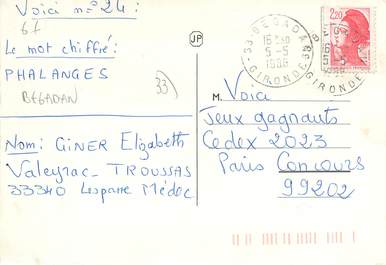 Voici n° 24:
67
Le mot chiffré:
PHALANGES
BEGADAN
33
Nom: GINER Elizabeth
Valeyrac-TROUSSAS
33340 Lesparre Médoc
JP
33 BEGADAN
16 H 30
5-5
1986
GIRONDE
2,20
GIRONDE
M. Voici
Jeux gagnants
Cedex 2023
Paris Concours
99202